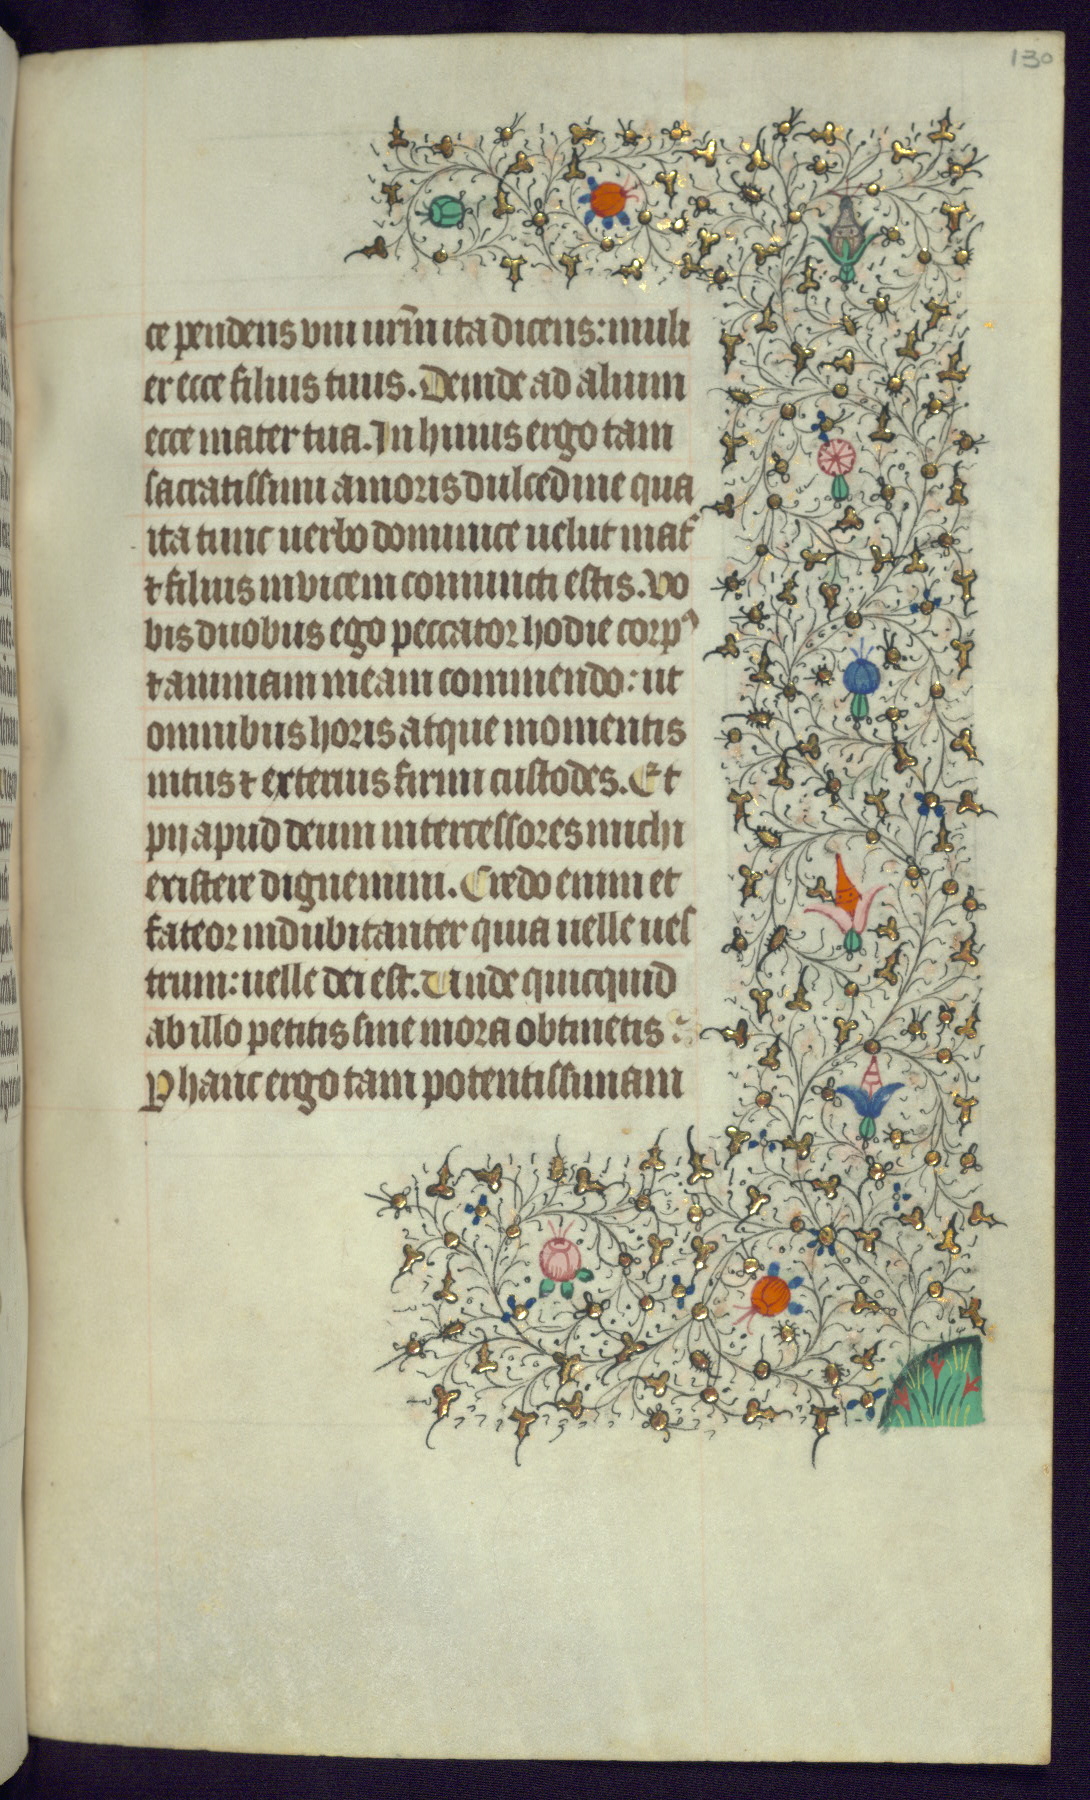 130
ce pendens vni urm̃ ita dicens: muli
er ecce filius tuus. Deinde ad alium
ecce mater tua. In huius ergo tam
sacratissimi amoris dulcedine qua
ita tunc uerbo dominice uelut mat͛
⁊ filius inuicem coniuncti estis. Vo
bis duobus ego peccator hodie corpꝰ
⁊ animam meam commendo: ut
omnibus horis atque momentis
intus ⁊ exterius firmi custodes. Et
pij apud deum intercessores michi
existere dignemini. Credo enim et
fateor indubitanter quia uelle ues
trum: uelle dei est. Unde quicquid
ab illo petitis sine mora obtinetis
Per hanc ergo tam potentissimam